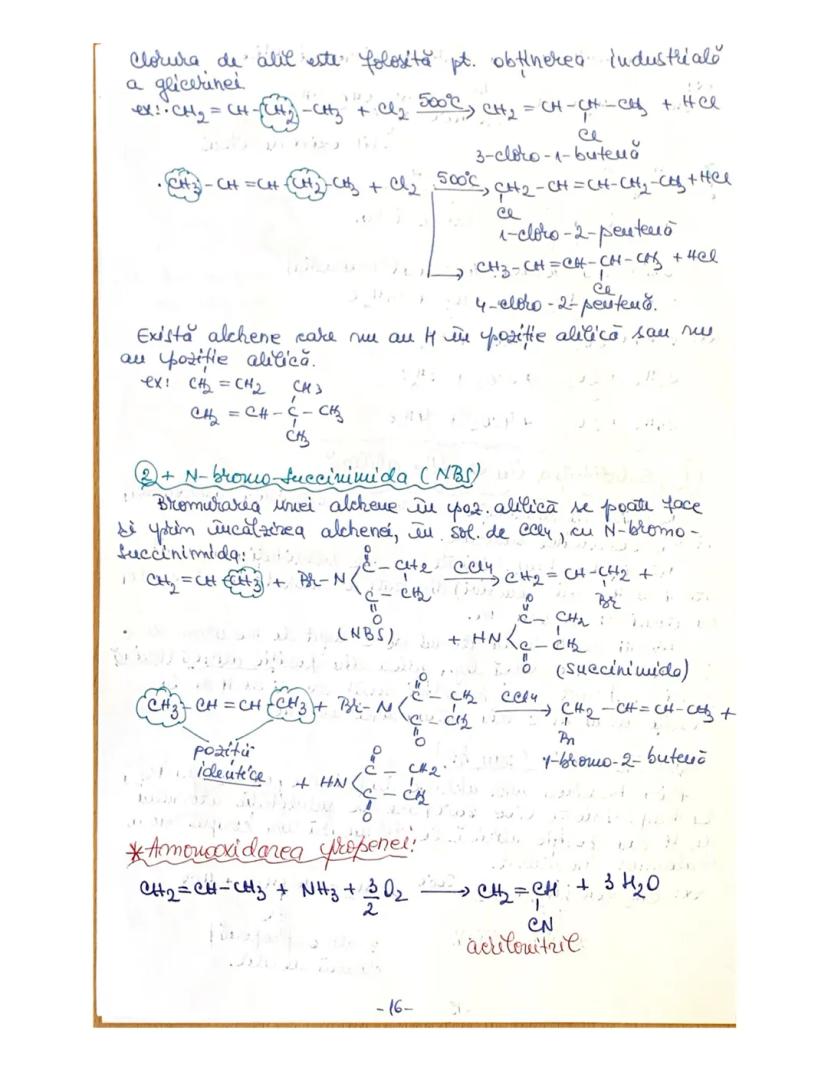 Clorura de alil este folosită pt. obținerea industrială
a glicerinei
ex: · CH2 = CH-CH2-CH3 + Cl2 500°C → CH2 = CH-CH-CH3 + HCl
Cl
3-cloro-1-butenă
· CH3-CH=CH-CH2-CH3 + Cl2 500°C → CH2-CH=CH-CH2-CH3+HCl
Cl
1-cloro-2-pentenă
→ CH3-CH=CH-CH-CH3 + HCl
Cl
4-cloro-2-pentenă.
Există alchene care nu au H în poziție alilică, sau nu
au poziție alilică.
ex: CH2 = CH2 CH3
CH2 = CH-C-CH3
CH3
② + N-bromo-succinimida (NBS)
Bromurarea unei alchene în poz. alilică se poate face
și prin încălzirea alchenei, în sol. de CCl4, cu N-bromo-
succinimida:
O
CH2=CH-CH3 + Br-N C-CH2 CCl4 → CH2 = CH-CH2 +
C-CH2 Br
O
(NBS) + HN
O
C-CH2
C-CH2
O
(succinimida)
O
CH3-CH=CH-CH3 + Br-N C-CH2 CCl4 → CH2-CH=CH-CH3 +
C-CH2 Br
O
poziții 1-bromo-2-butenă
identice
O
+ HN C-CH2
C-CH2
O
*Amonoxidarea propenei:
CH2=CH-CH3 + NH3 + 3/2 O2 → CH2=CH + 3 H2O
CN
acrilonitril
-16-